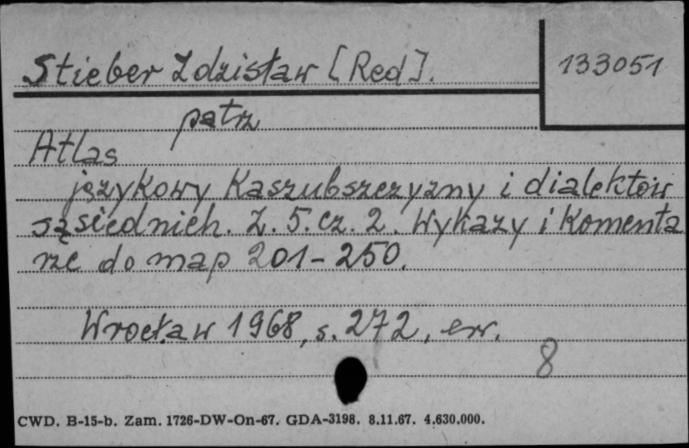 Stieber Zdzisław [Red].
133051
patrz
Atlas
językowy Kaszubszczyzny i dialektów
sąsiednich. Z. 5. cz. 2. Wykazy i Komenta
rze do map 201-250.
Wrocław 1968, s. 272, err.
8
CWD. B-15-b. Zam. 1726-DW-On-67. GDA-3198. 8.11.67. 4.630.000.